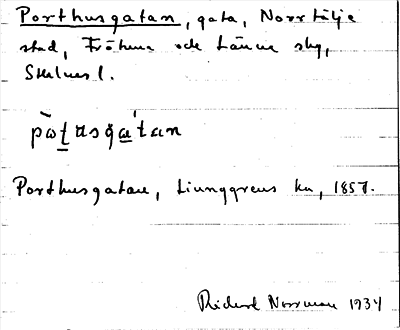 Porthusgatan, gata, Norrtälje
stad, Frötuna och Länna skg,
Sthlms l.
pòṭusga̱'tan
Porthusgatan, Ljunggrens ka, 1857.
Rickard Norrman 1934